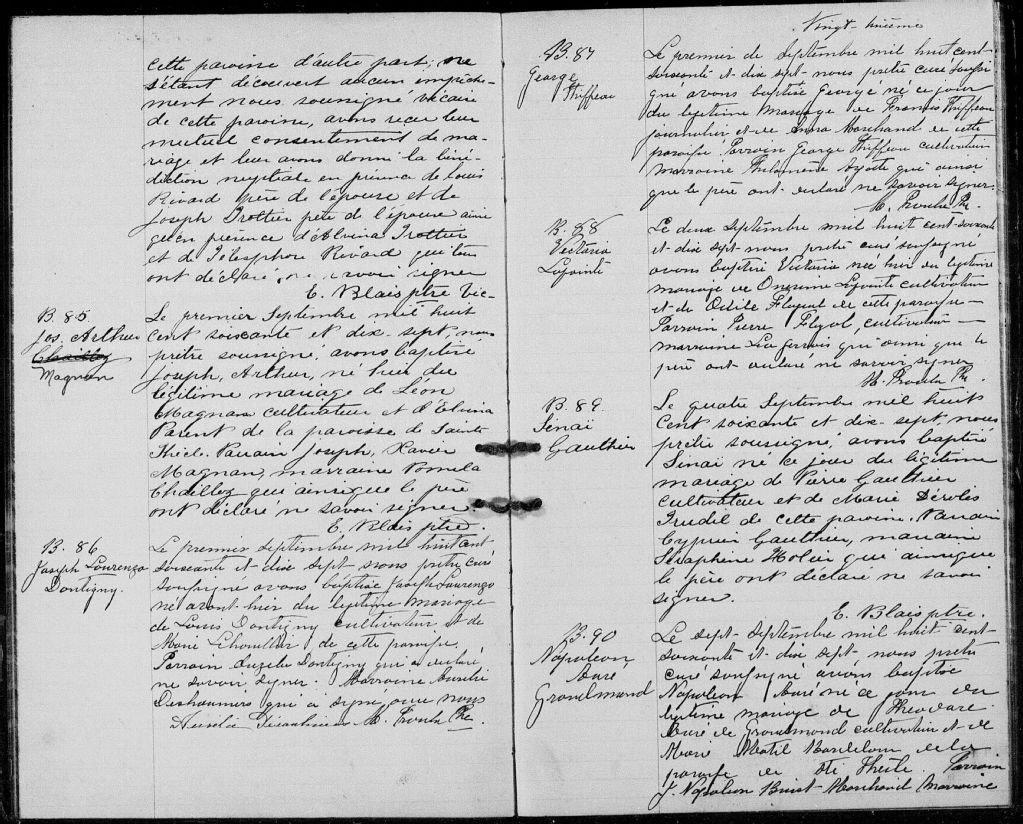 cette paroisse d'autre part; ne
s'étant découvert aucun empêche-
ment nous soussigné vicaire
de cette paroisse, avons reçu leur
mutuel consentement de ma-
riage et leur avons donné la béné-
diction nuptiale en présence de Louis
Rivard père de l'épouse et de
Joseph Trottier père de l'épouse ainsi
qu'en présence d'Alvina Trottier
et de Télesphore Rivard qui tous
ont déclaré ne savoir signer
E. Blais ptre Vic-
B. 85
Jos. Arthur
Chaillez
Magnan
Le premier Septembre mil huit
cent soixante et dix-sept, nous
prêtre soussigné, avons baptisé
Joseph, Arthur, né hier du
légitime mariage de Léon
Magnan cultivateur et d'Elvina
Parent de la paroisse de Sainte
Thècle. Parrain Joseph, Xavier
Magnan, marraine
Chaillez qui ainsi que le père
ont déclaré ne savoir signer.
E. Blais ptre.
B. 86
Joseph Lourenzo
Dontigny.
Le premier Septembre mil huit cent
soixante et dix sept nous prêtre curé
soussigné avons baptisé Joseph Laurenzo
né avant-hier du légitime mariage
de Louis Dontigny cultivateur et de
Marie de cette paroisse.
Parrain Dontigny qui a déclaré
ne savoir signer. Marraine Aurélie
Deshaumiers qui a signé avec nous
Aurélie M. Proulx Ptre.
Vingt-huitième
B. 87
George
Thiffeau
Le premier de Septembre mil huit cent-
soixante et dix sept nous prêtre curé soussi
gné avons baptisé George né ce jour
du légitime mariage de François Thiffeau
journalier et de Anna Marchand de cette
paroisse. Parrain George Thiffeau cultivateur
marraine Philomène Ayotte qui ainsi
que le père ont déclaré ne savoir signer.
M. Proulx Ptre.
B. 88
Victoria
Lajointe
Le deux Septembre mil huit cent-soixante
et-dix sept nous prêtre curé soussigné
avons baptisé Victoria née hier du légitime
mariage de Onesime Lajointe cultivateur
et de Odile de cette paroisse -
Parrain Pierre cultivateur -
marraine qui ainsi que le
père ont déclaré ne savoir signer
M. Proulx Ptre.
B. 89.
Sinaï
Gauthier
Le quatre Septembre mil huit
cent soixante et dix-sept, nous
prêtre soussigné, avons baptisé
Sinaï né ce jour du légitime
mariage de Pierre Gauthier
cultivateur et de Marie Dérolès
Trudel de cette paroisse. Parrain
Cyprien Gauthier, marraine
Séraphine qui ainsi que
le père ont déclaré ne savoir
signer.
E. Blais ptre.
B. 90
Napoleon
Huré
Grandmond
Le sept Septembre mil huit cent-
soixante et dix sept nous prêtre
curé soussigné avons baptisé
Napoleon né ce jour du
légitime mariage de Theodore
de Grandmond cultivateur et de
Marie Bordeleau de la
paroisse de Ste Thècle. Parrain
J. Napoleon Marchand Marraine